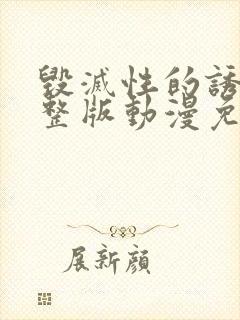 毀滅性的誘
整版動漫免
展新顏